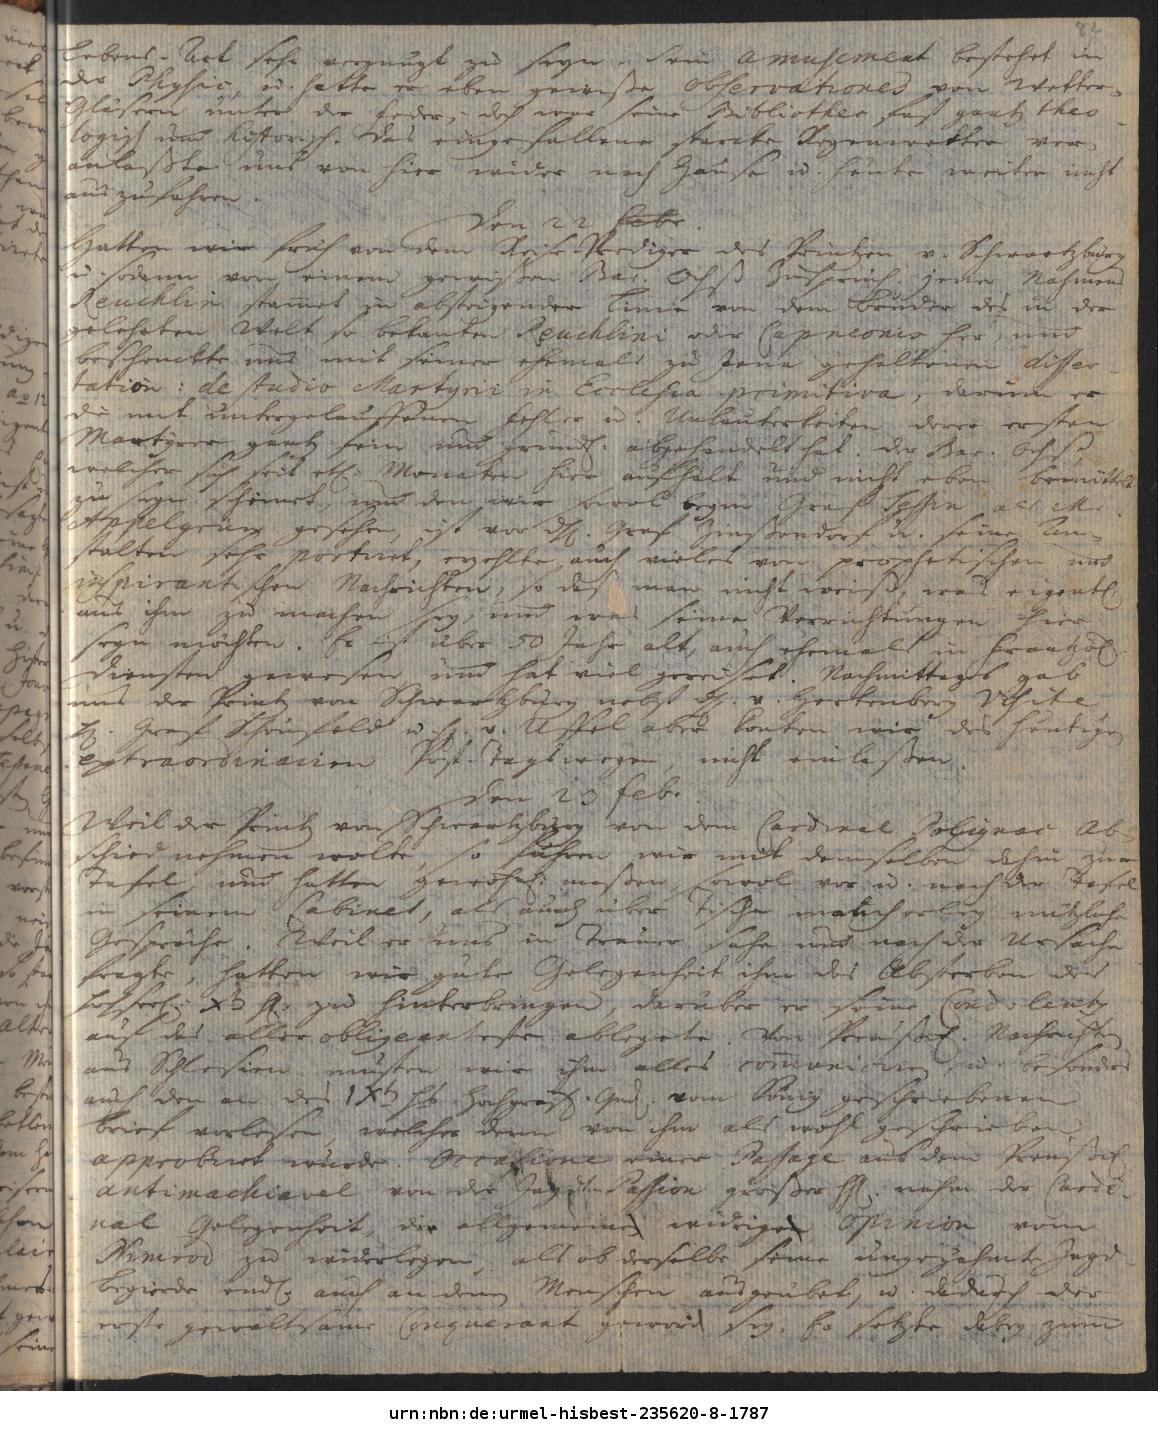 82
lebens-Art sehr vergnügt zu seyn. Sein amusement bestehet in
der Physic, u. hatte er eben gewiße observationes von Wetter-
Gläsern unter der feder, doch war seine Bibliothec fast gantz theo-
logisch und historisch. Das eingefallene starcke Regenwetter ver-
anlaßte uns von hier wider nach Hause u. heute weiter nicht
auszufahren.
Den 22 febr.
Hatten wir früh von dem Reise-Prediger des Printzen v. Schwartzburg
u. sodann von einem gewißen Bar. Ochß Zuspruch. jener Nahmens
Reuchlin stammet in absteigender Linie von dem Bruder des in der
gelehrten Welt so bekanten Reuchlini oder Capnionis her, und
beschenckte uns mit seiner ehemals zu Jena gehaltenen disser-
tation: de studio Martyrii in Ecclesia primitiva, darinn er
die mit untergelauffenen fehler u. Unlauterkeiten derer ersten
Martyrer gantz fein und gründl. abgehandelt hat. der Bar. Ochß,
welcher sich seit etl. Monaten hier aufhält und nicht eben bemittelt
zu seyn scheinet, und den wir sowol beym Graf Tessin als Mr.
Appelgrün gesehen, ist vor dH. Graf Zinßendorf u. seine An-
stalten sehr portiret, erzehlte auch vieles von prophetischen und
inspirantischen Nachrichten, so daß man nicht weiß, was eigentl.
aus ihm zu machen sey, und was seine Verrichtungen hier
seyn möchten. Er ist über 50 Jahr alt, auch ehemals in frantzös.
Diensten gewesen und hat viel gereiset. Nachmittags gab
uns der Printz von Schwartzburg nebst H. v. Hertenberg Visite
H. Graf Schönfeld u. H. v. Uffel aber konten wir des heutigen
extraordinairen Post-Tags wegen, nicht einlaßen.
Den 23 febr.
Weil der Printz von Schwartzburg von dem Cardinal Polignac Ab-
schied nehmen wolte, so fuhren wir mit demselben dahin zur
Tafel, und hatten gewöhnl. maßen, sowol vor u. nach der Tafel
in seinem Cabinet, als auch über Tische mancherley nützliche
Gespräche. Weil er uns in Trauer sahe und nach der Ursache
fragte, hatten wir gute Gelegenheit ihm das Absterben des
hochseel. zu hinterbringen, darüber er seine Condolentz
auf das aller obligeanteste ablegete. Von Preußis. Nachrichten
aus Schlesien musten wir ihm alles communiciren, u. besonders
auch den an des Hochgräfl. Gnd. vom König geschriebenen
brief vorlesen, welcher denn von ihm als wohl geschrieben
approbiret wurde. Occasione einer Passage aus dem Preußis.
antimachiavel von der Jagd-Passion großer Hl. nahm der Cardi-
nal Gelegenheit, die allgemeine widrige Opinion vom
Nimrod zu widerlegen, als ob derselbe seine ungezähmte Jagd-
begierde endl. auch an denen Menschen ausgeübet, u. dadurch der
erste gewaltsame Conquerant geword sey. Er setzte dabey zum
urn:nbn:de:urmel-hisbest-235620-8-1787